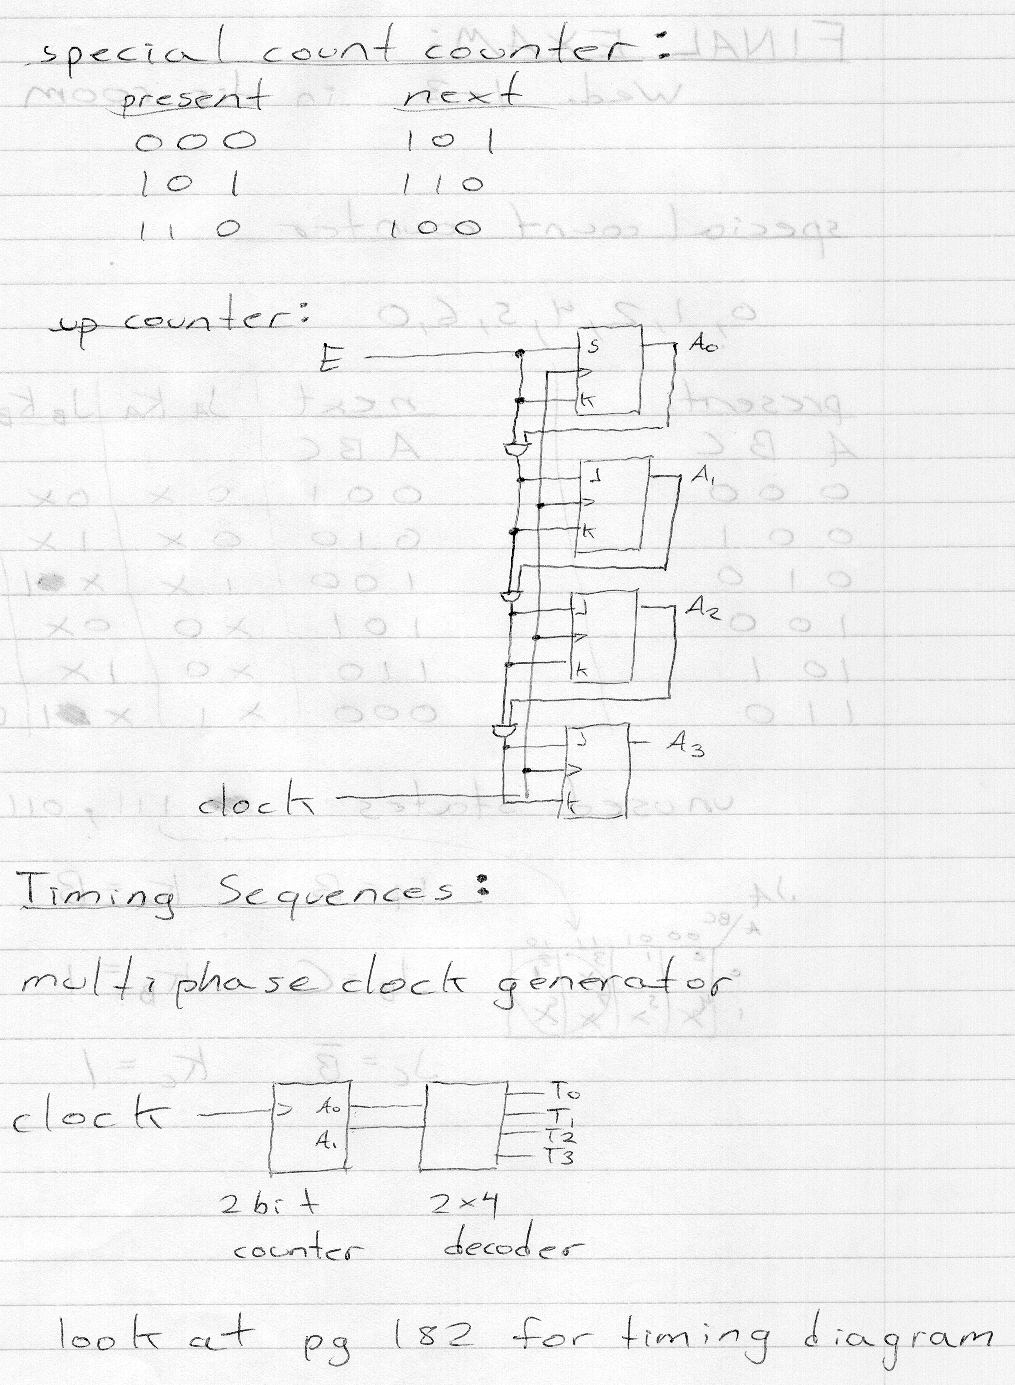 special count counter:
present next
000 101
101 110
110 100
up counter:
E S A0
K
J A1
K
J A2
K
J A3
clock K
Timing Sequences:
multiphase clock generator
clock A0 T0
A1 T1
T2
T3
2 bit 2x4
counter decoder
look at pg 182 for timing diagram